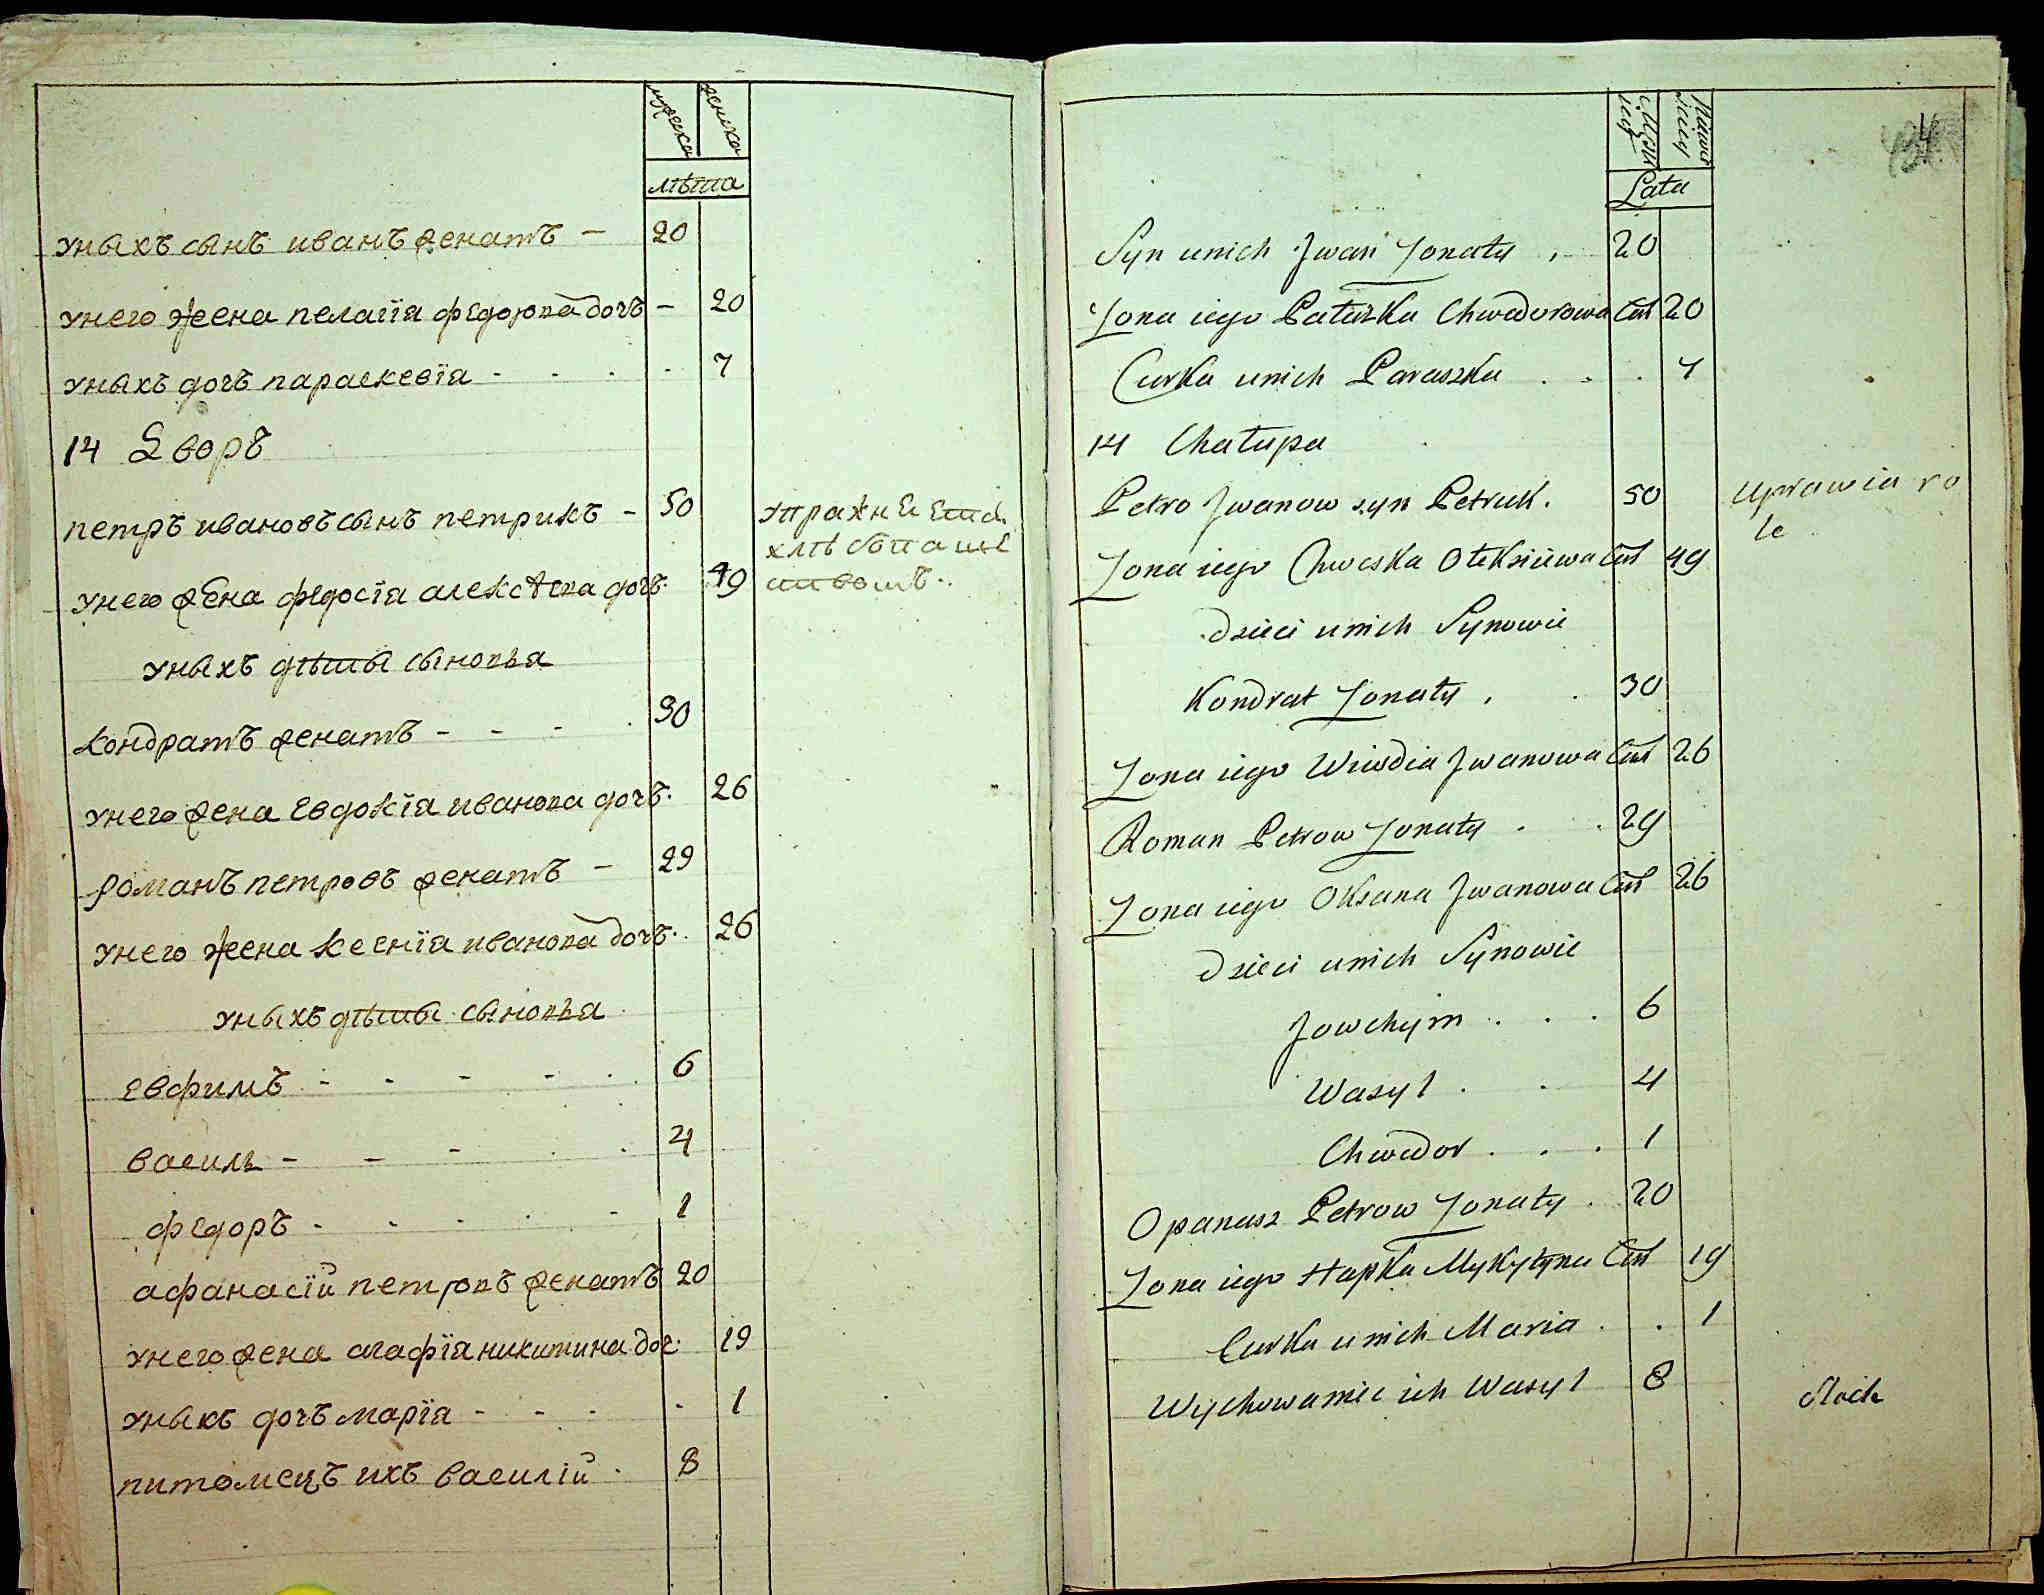 мужеска женска
лѣта
Уныхъ сынъ иванъ женатъ - 20
унего жена пелагїя федорова дочъ - 20
уныхъ дочъ параскевїя - - - - 7
14 Дворъ
петръ ивановъ сынъ петрикъ - 50
упражнѧетсѧ
хлѣбопаше
ствомъ.
унего жена федосїя алексѣева дочъ. 49
уныхъ дѣти сыновья
кондратъ женатъ - - - 30
унего жена евдокїя иванова дочъ. 26
романъ петровъ женатъ - 29
унего жена ксенїя иванова дочъ. 26
уныхъ дѣти сыновья
евфимъ - - - - 6
василь - - - 4
федоръ - - - - 1
афанасїй петровъ женатъ 20
унего жена агафїя никитина доч. 19
уныхъ дочъ марїя - - - 1
питомецъ ихъ василїй 8
4
Lata
Syn unich Jwan Zonaty 20
Zona iego Palazka Chwedorowa Cur 20
Curka unich Paraszka . . . 7
14 Chałupa
Petro Jwanow syn Petruk. 50
Uprawia ro
le
Zona iego Chweska Oleksiiewa Cur 49
Dzieci unich Synowie
Kondrat Zonaty . 30
Zona iego Wiwdia Jwanowa Cur 26
Roman Petrow Zonaty . . 29
Zona iego Oksana Jwanowa Cur 26
Dzieci unich Synowie
Jowchym . . . 6
Wasyl . . 4
Chwedor . . . 1
Opanasz Petrow Zonaty . 20
Zona iego Hapka Mykytyna Cur 19
Curka unich Maria . . 1
Wychowaniec ich Wasyl 8